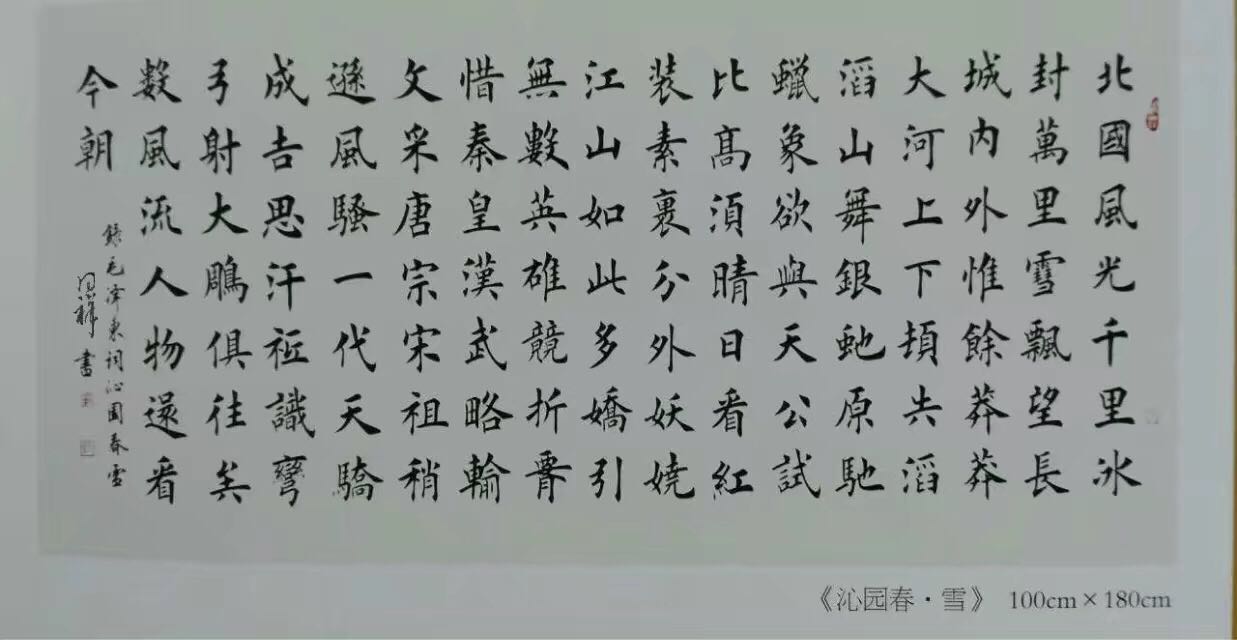 北國風光千里冰
封萬里雪飄望長
城内外惟餘莽莽
大河上下頓失滔
滔山舞銀虵原馳
蠟象欲與天公試
比髙須晴日看紅
装素裹分外妖嬈
江山如此多嬌引
無數英雄競折腰
惜秦皇漢武略輸
文采唐宗宋祖稍
遜風騷一代天驕
成吉思汗祗識彎
弓射大鵰俱往矣
數風流人物還看
今朝
錄毛澤東詞沁園春雪
書
《沁园春·雪》 100cm×180cm